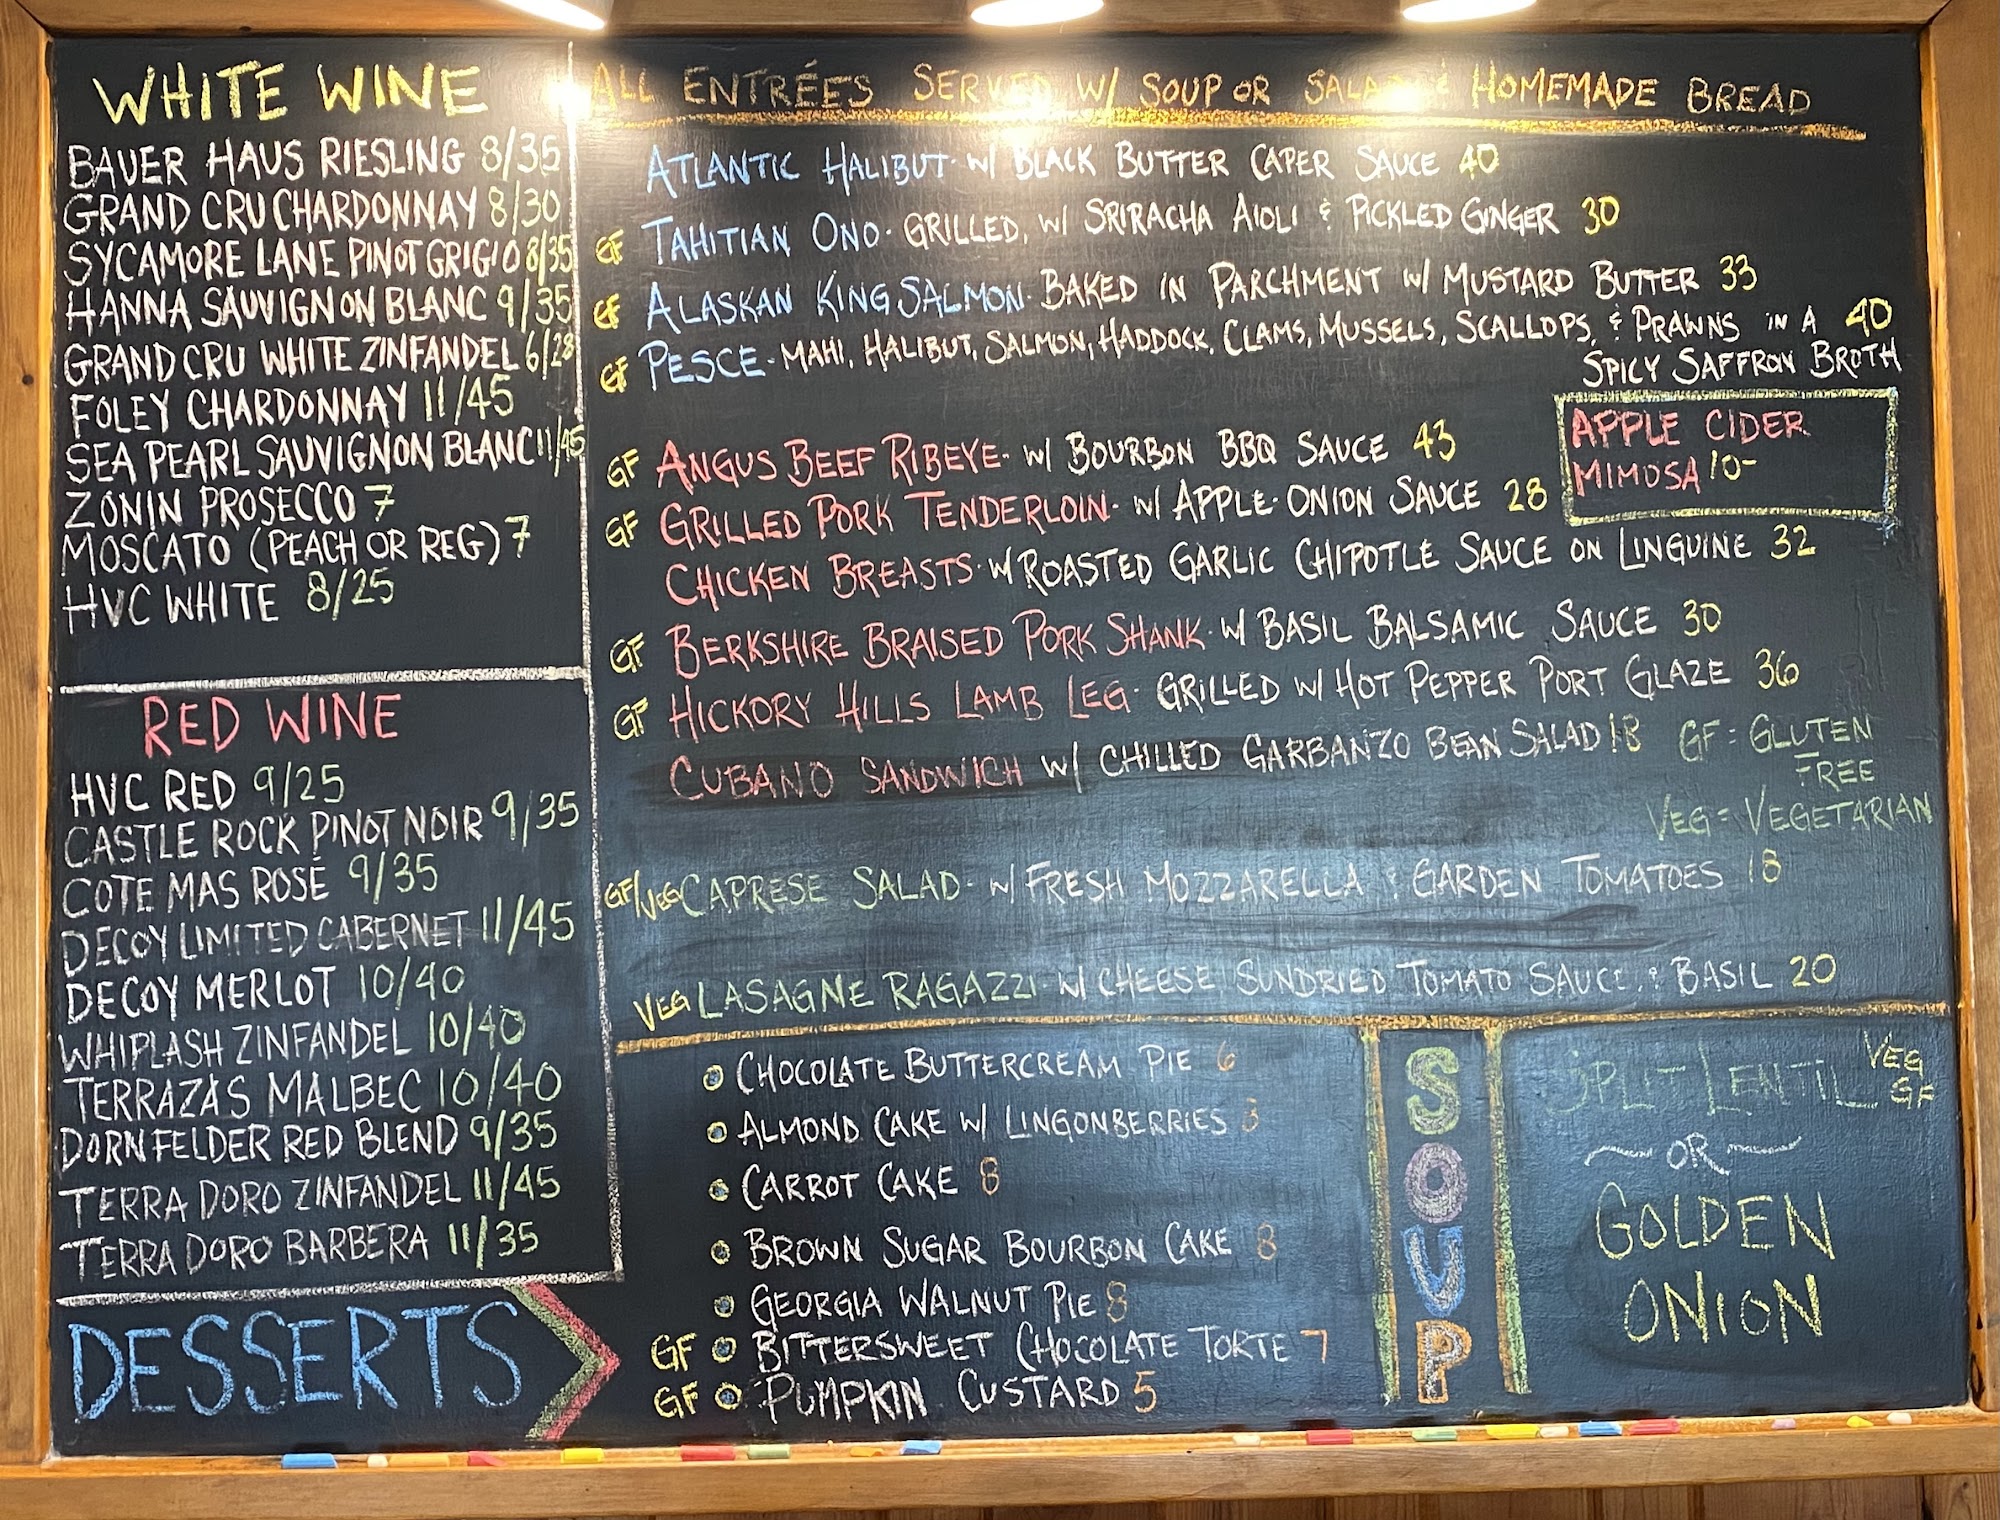 WHITE WINE
BAUER HAUS RIESLING 8/35
GRAND CRU CHARDONNAY 8/30
SYCAMORE LANE PINOT GRIGIO 8/35
HANNA SAUVIGNON BLANC 9/35
GRAND CRU WHITE ZINFANDEL 6/28
FOLEY CHARDONNAY 11/45
SEA PEARL SAUVIGNON BLANC 11/45
ZONIN PROSECCO 7
MOSCATO (PEACH OR REG) 7
HVC WHITE 8/25
RED WINE
HVC RED 9/25
CASTLE ROCK PINOT NOIR 9/35
COTE MAS ROSÉ 9/35
DECOY LIMITED CABERNET 11/45
DECOY MERLOT 10/40
WHIPLASH ZINFANDEL 10/40
TERRAZAS MALBEC 10/40
DORNFELDER RED BLEND 9/35
TERRA DORO ZINFANDEL 11/45
TERRA DORO BARBERA 11/35
ALL ENTRÉES SERVED W/ SOUP OR SALAD & HOMEMADE BREAD
ATLANTIC HALIBUT - W/ BLACK BUTTER CAPER SAUCE 40
GF TAHITIAN ONO - GRILLED, W/ SRIRACHA AIOLI & PICKLED GINGER 30
GF ALASKAN KING SALMON - BAKED IN PARCHMENT W/ MUSTARD BUTTER 33
GF PESCE - MAHI, HALIBUT, SALMON, HADDOCK, CLAMS, MUSSELS, SCALLOPS, & PRAWNS IN A 40
SPICY SAFFRON BROTH
APPLE CIDER
MIMOSA 10-
GF ANGUS BEEF RIBEYE - W/ BOURBON BBQ SAUCE 43
GF GRILLED PORK TENDERLOIN - W/ APPLE-ONION SAUCE 28
CHICKEN BREASTS - W/ ROASTED GARLIC CHIPOTLE SAUCE ON LINGUINE 32
GF BERKSHIRE BRAISED PORK SHANK - W/ BASIL BALSAMIC SAUCE 30
GF HICKORY HILLS LAMB LEG - GRILLED W/ HOT PEPPER PORT GLAZE 36
CUBANO SANDWICH W/ CHILLED GARBANZO BEAN SALAD 18
GF = GLUTEN
FREE
VEG = VEGETARIAN
GF/VEG CAPRESE SALAD - W/ FRESH MOZZARELLA & GARDEN TOMATOES 18
VEG LASAGNE RAGAZZI - W/ CHEESE SUNDRIED TOMATO SAUCE, & BASIL 20
DESSERTS
CHOCOLATE BUTTERCREAM PIE 6
ALMOND CAKE W/ LINGONBERRIES
CARROT CAKE 8
BROWN SUGAR BOURBON CAKE 8
GEORGIA WALNUT PIE 8
GF BITTERSWEET CHOCOLATE TORTE 7
GF PUMPKIN CUSTARD 5
SOUP
SPLIT LENTIL VEG
GF
OR
GOLDEN
ONION